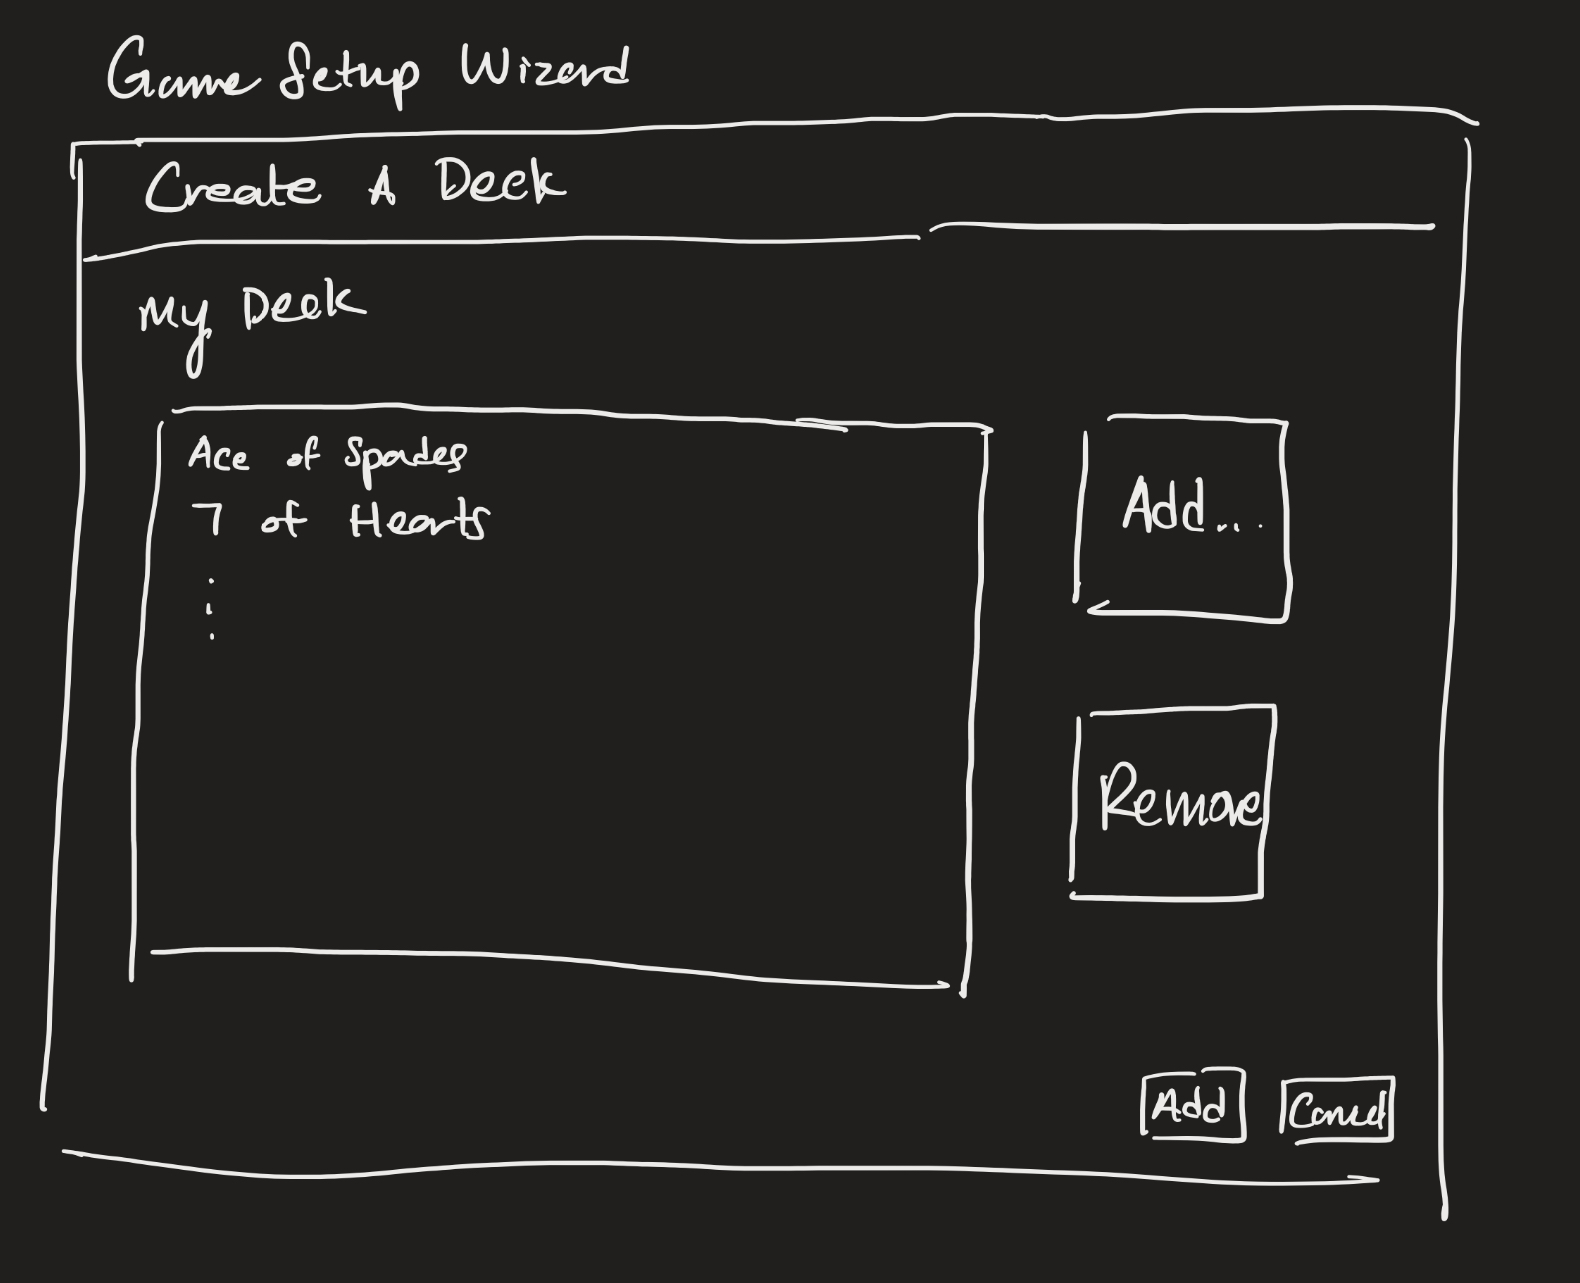 Game Setup Wizard
Create A Deck
My Deck
Ace of Spades
7 of Hearts
Add...
Remove
Add
Cancel